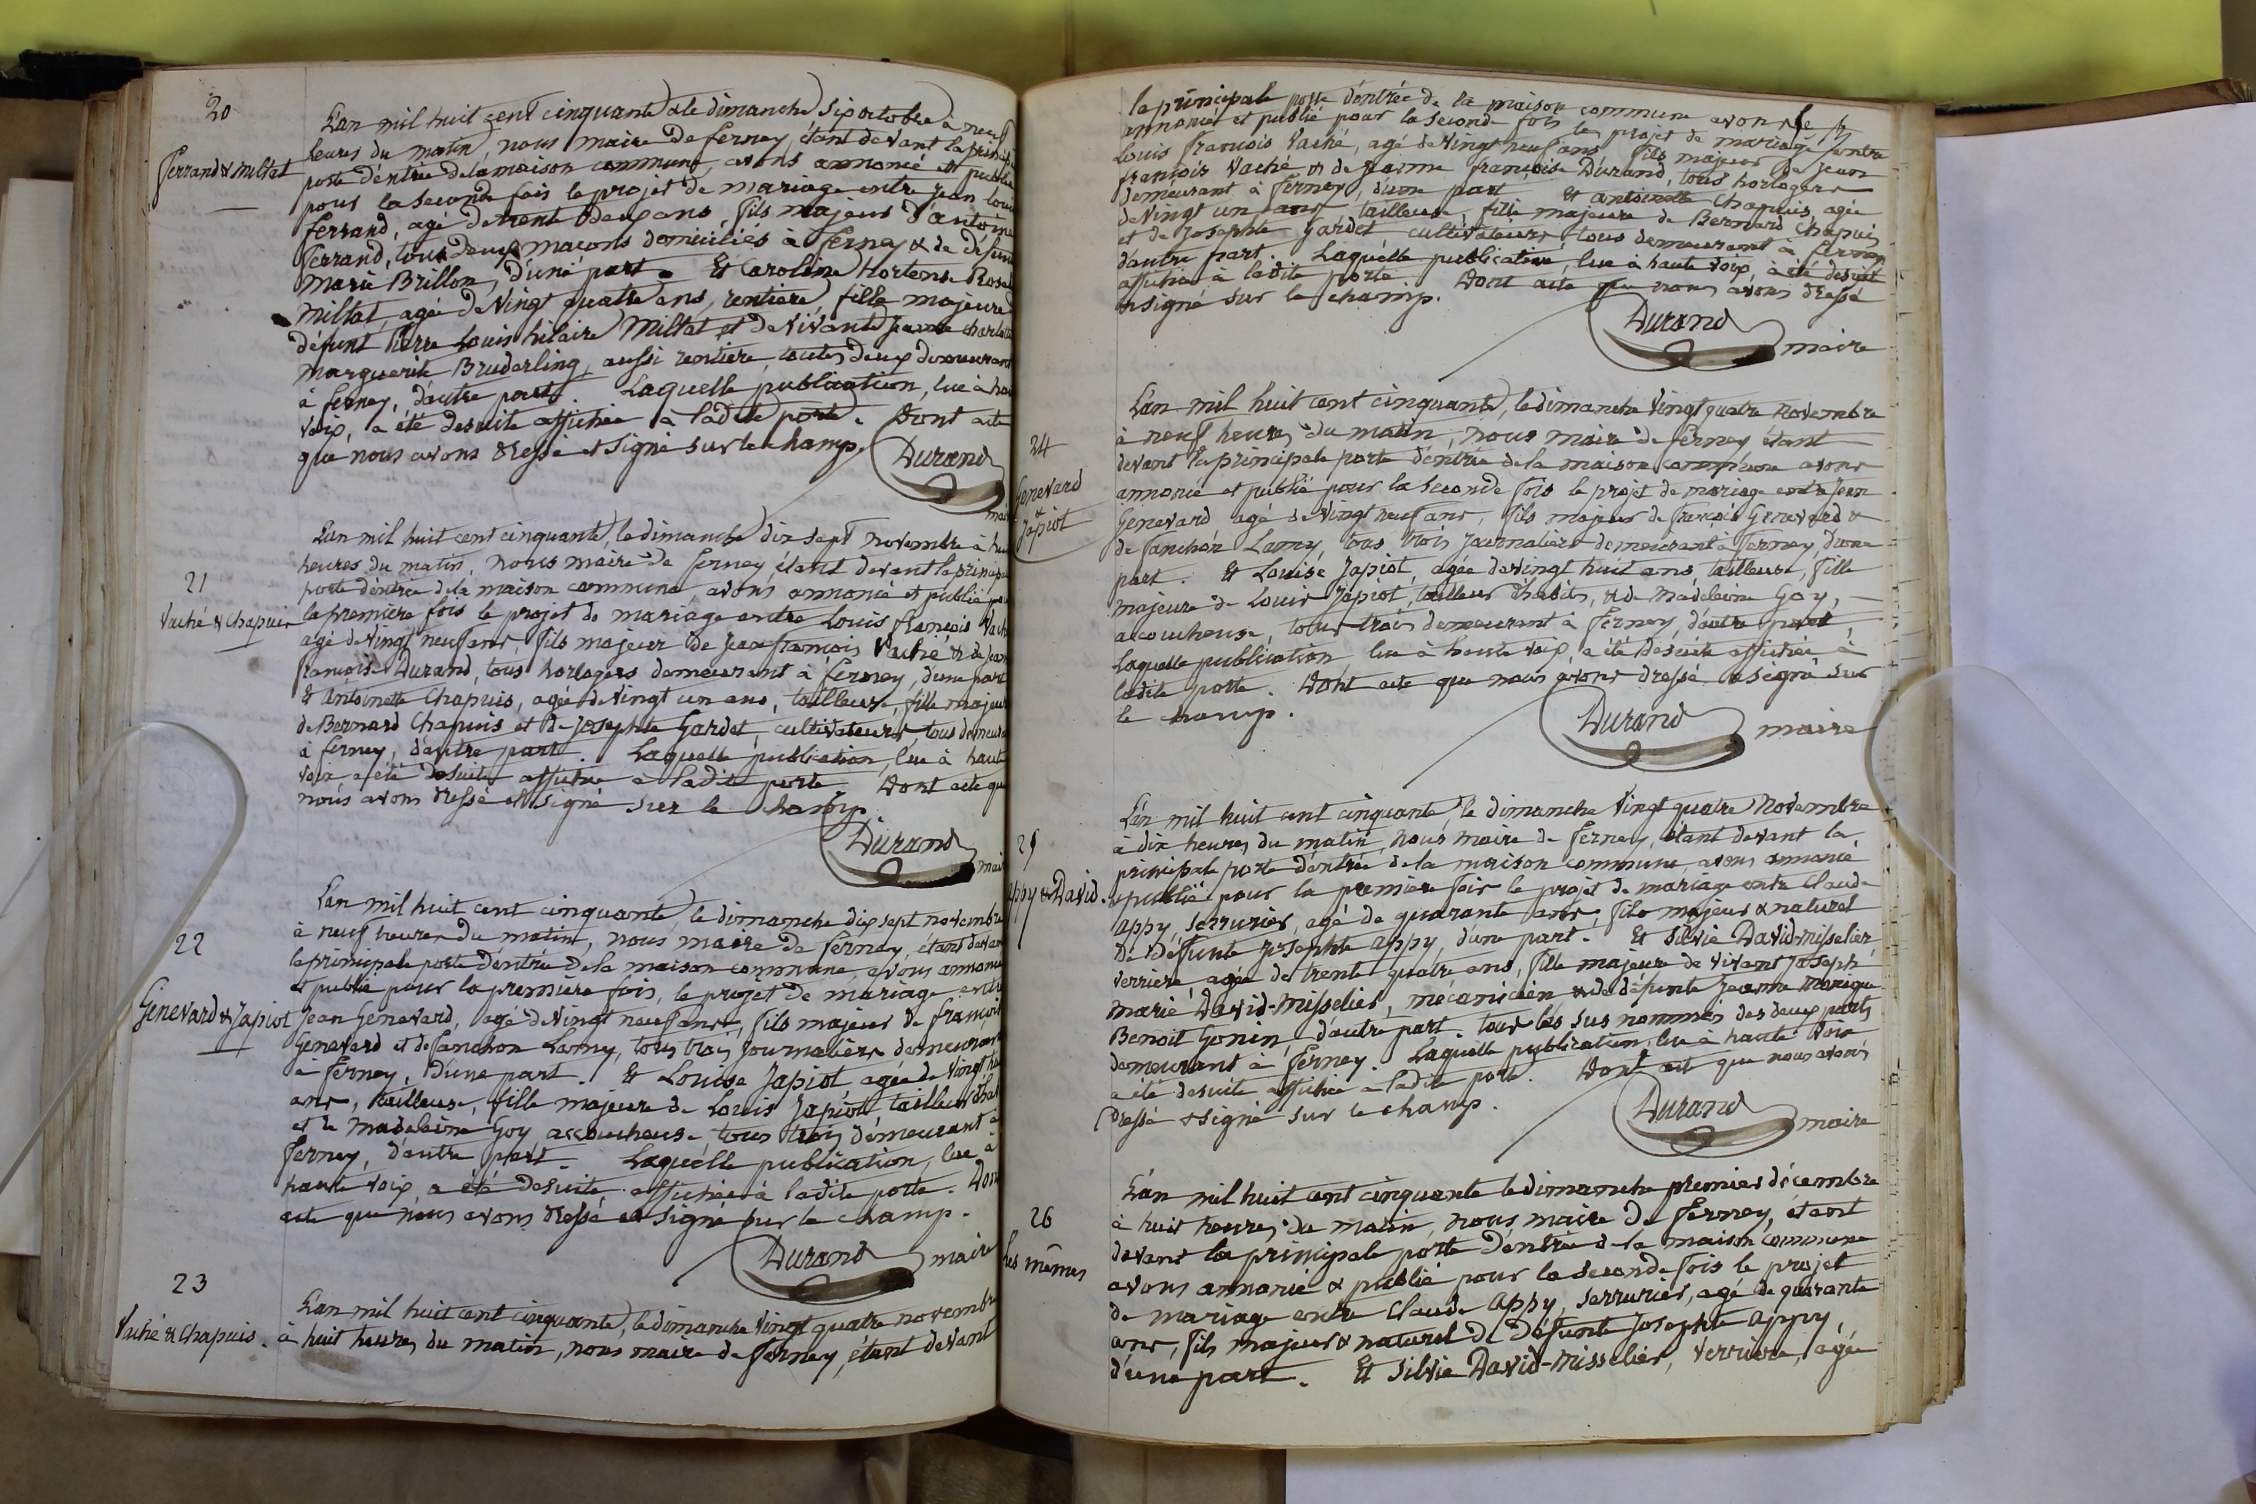 20
Ferrand & Miltat
L'an mil huit cent cinquante & le dimanche six octobre à neuf
heures du matin, nous maire de ferney, étant devant la princip
porte d'entrée de la maison commune, avons annoncé et publié
pour la seconde fois le projet de mariage entre Jean Louis
ferrand, agé de trente deux ans, fils majeur d'antoine
ferrand, tous deux maçons domiciliés à ferney & de défun
marie Brillon, d'une part. Et Caroline Hortense Rose
Miltat, agée de Vingt quatre ans, rentière, fille majeure
défunt Pierre Louis hilaire Miltat et de vivante Jeanne charlotte
marguerite Bruderling, aussi rentière, toutes deux demeurant
à ferney, d'autre part. Laquelle publication, lue à hau
voix, a été desuite affichée à ladite porte. Dont acte
que nous avons dressé et signé sur le champ.
Durand
mai
21
Vaché & Chapuis
L'an mil huit cent cinquante, le dimanche dix sept novembre à hui
heures du matin, nous maire de ferney, étant devant la princip
porte d'entrée de la maison commune, avons annoncé et publié pou
la première fois le projet de mariage entre Louis françois Vach
agé de vingt neuf ans, fils majeur de Jean françois Vaché & de Jean
françoise Durand, tous horlogers demeurant à ferney, d'une part
& Antoinette Chapuis, agée de vingt un ans, tailleuse, fille majeur
de Bernard Chapuis et de Josephte Gardet, cultivateurs, tous demeura
à ferney, d'autre part. Laquelle publication, lue à haute
voix a été desuite affichée à ladite porte. Dont acte que
nous avons dressé et signé sur le champ.
Durand
mai
22
Genevard & Japiot
L'an mil huit cent cinquante, le dimanche dix sept novembre
à neuf heures du matin, nous maire de ferney, étant devan
la principale porte d'entrée de la maison commune, avons annoncé
et publié pour la première fois, le projet de mariage entre
Jean Genevard, agé de Vingt neuf ans, fils majeur de françois
Genevard et de fanchon Lamy, tous trois journaliers demeurant
à ferney, d'une part. Et Louise Japiot, agée de Vingt hui
ans, tailleuse, fille majeure de Louis Japiot, tailleur d'hab
et de Madeleine Goy, accoucheuse, tous trois demeurant à
ferney, d'autre part. Laquelle publication, lue à
haute voix, a été desuite affichée à ladite porte. Dont
acte que nous avons dressé et signé sur le champ.
Durand
maire
23
Vaché & Chapuis.
L'an mil huit cent cinquante, le dimanche Vingt quatre novembre
à huit heures du matin, nous maire de ferney, étant devant
la principale porte d'entrée de la maison commune avons
annoncé et publié pour la seconde fois le projet de mariage entre
Louis françois Vaché, agé de Vingt neuf ans fils majeur de Jean
françois Vaché & de Jeanne françoise Durand, tous horlogers
demeurant à ferney, d'une part & antoinette Chapuis, agée
de Vingt un ans, tailleuse, fille majeure de Bernard Chapuis
et de Josephte Gardet cultivateurs tous demeurant à ferney
d'autre part. Laquelle publication, lue à haute voix, a été desuite
affichée à ladite porte. Dont acte que nous avons dressé
& signé sur le champ.
Durand
maire
24
Genevard
&
Japiot
L'an mil huit cent cinquante, le dimanche Vingt quatre novembre
à neuf heures du matin, nous maire de ferney étant
devant la principale porte d'entrée de la maison commune avons
annoncé et publié pour la seconde fois le projet de mariage entre Jean
Genevard agé de Vingt neuf ans, fils majeur de françois Genevard &
de fanchon Lamy, tous trois journaliers demeurant à ferney, d'une
part. Et Louise Japiot, agée de vingt huit ans, tailleuse, fille
majeure de Louis Japiot, tailleur d'habits, & de Madeleine Goy,
accoucheuse, tous trois demeurant à ferney d'autre part,
Laquelle publication lue à haute voix, a été desuite affichée à
ladite porte. Dont acte que nous avons dressé & signé sur
le champ.
Durand
maire
25
appy & David.
L'an mil huit cent cinquante, le dimanche Vingt quatre Novembre
à dix heures du matin, nous maire de ferney, étant devant la
principale porte d'entrée de la maison commune, avons annoncé
& publié pour la première fois le projet de mariage entre Claude
appy, serrurier, agé de quarante ans, fils majeur & naturel
de Défunte Josephte appy, d'une part. Et Silvie David-Misselier
verrière, agée de trente quatre ans, fille majeure de vivant Joseph
marie David-Misselier, mécanicien & de défunte Jeanne Monique
Benoit Gonin, d'autre part. tous les sus nommés des deux parts
demeurant à ferney. Laquelle publication, lue à haute voix
a été desuite affichée à ladite porte. Dont acte que nous avons
dressé & signé sur le champ.
Durand
maire
26
Les mêmes
L'an mil huit cent cinquante le dimanche premier décembre
à huit heures du matin, nous maire de ferney, étant
devant la principale porte d'entrée de la maison commune
avons annoncé & publié pour la seconde fois le projet
de mariage entre Claude appy, serrurier, agé de quarante
ans, fils majeur & naturel de défunte Josephte appy,
d'une part. Et Silvie David-Misselier, verrière, agée